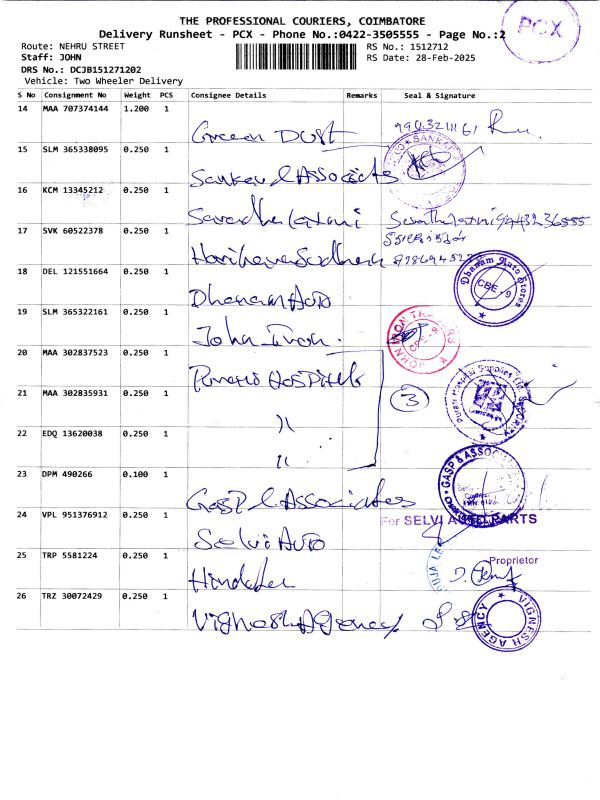 THE PROFESSIONAL COURIERS, COIMBATORE
Delivery Runsheet - PCX - Phone No.:0422-3505555 - Page No.:2
PCX
Route: NEHRU STREET
RS No.: 1512712
Staff: JOHN
RS Date: 28-Feb-2025
DRS No.: DCJB151271202
Vehicle: Two Wheeler Delivery
S No Consignment No Weight PCS Consignee Details Remarks Seal & Signature
14 MAA 707374144 1.200 1 Green Dust
15 SLM 365338095 0.250 1 Sankar & Associats
16 KCM 13345212 0.250 1
17 SVK 60522378 0.250 1
18 DEL 121551664 0.250 1 Dhanam Auto
Dhanam Auto Stores CBE-9
19 SLM 365322161 0.250 1 John Iron.
20 MAA 302837523 0.250 1 Hospitals
21 MAA 302835931 0.250 1 〃 3
22 EDQ 13620038 0.250 1 〃
23 DPM 490266 0.100 1 Gasp & Associates
GASP & ASSOC
24 VPL 951376912 0.250 1 Selvi Auto
For SELVI AUTO PARTS
25 TRP 5581224 0.250 1
Proprietor
26 TRZ 30072429 0.250 1 Vighnesh Agency
VIGNESH AGENCY